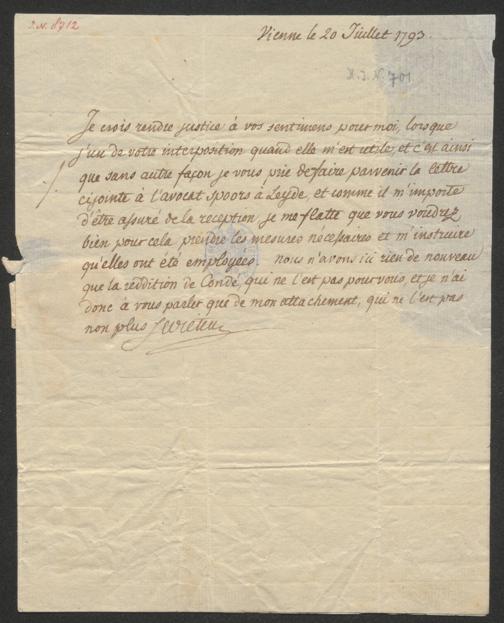 I.N. 8712
Vienne le 20 Juillet 1793.
Je crois rendre justice à vos sentimens pour moi, lorsque
j'use de votre interposition quand elle m'est utile et c'est ainsi
que sans autre façon je vous prie de faire parvenir la lettre
cijointe à l'avocat Spoors à Leyde, et comme il m'importe
d'être assuré de la reception, je me flatte que vous voudrez
bien pour cela prendre les mesures nécessaires et m'instruire
qu'elles ont été employées. nous n'avons ici rien de nouveau
que la reddition de Condé, qui ne l'est pas pour vous, et je n'ai
donc à vous parler que de mon attachement, qui ne l'est pas
non plus